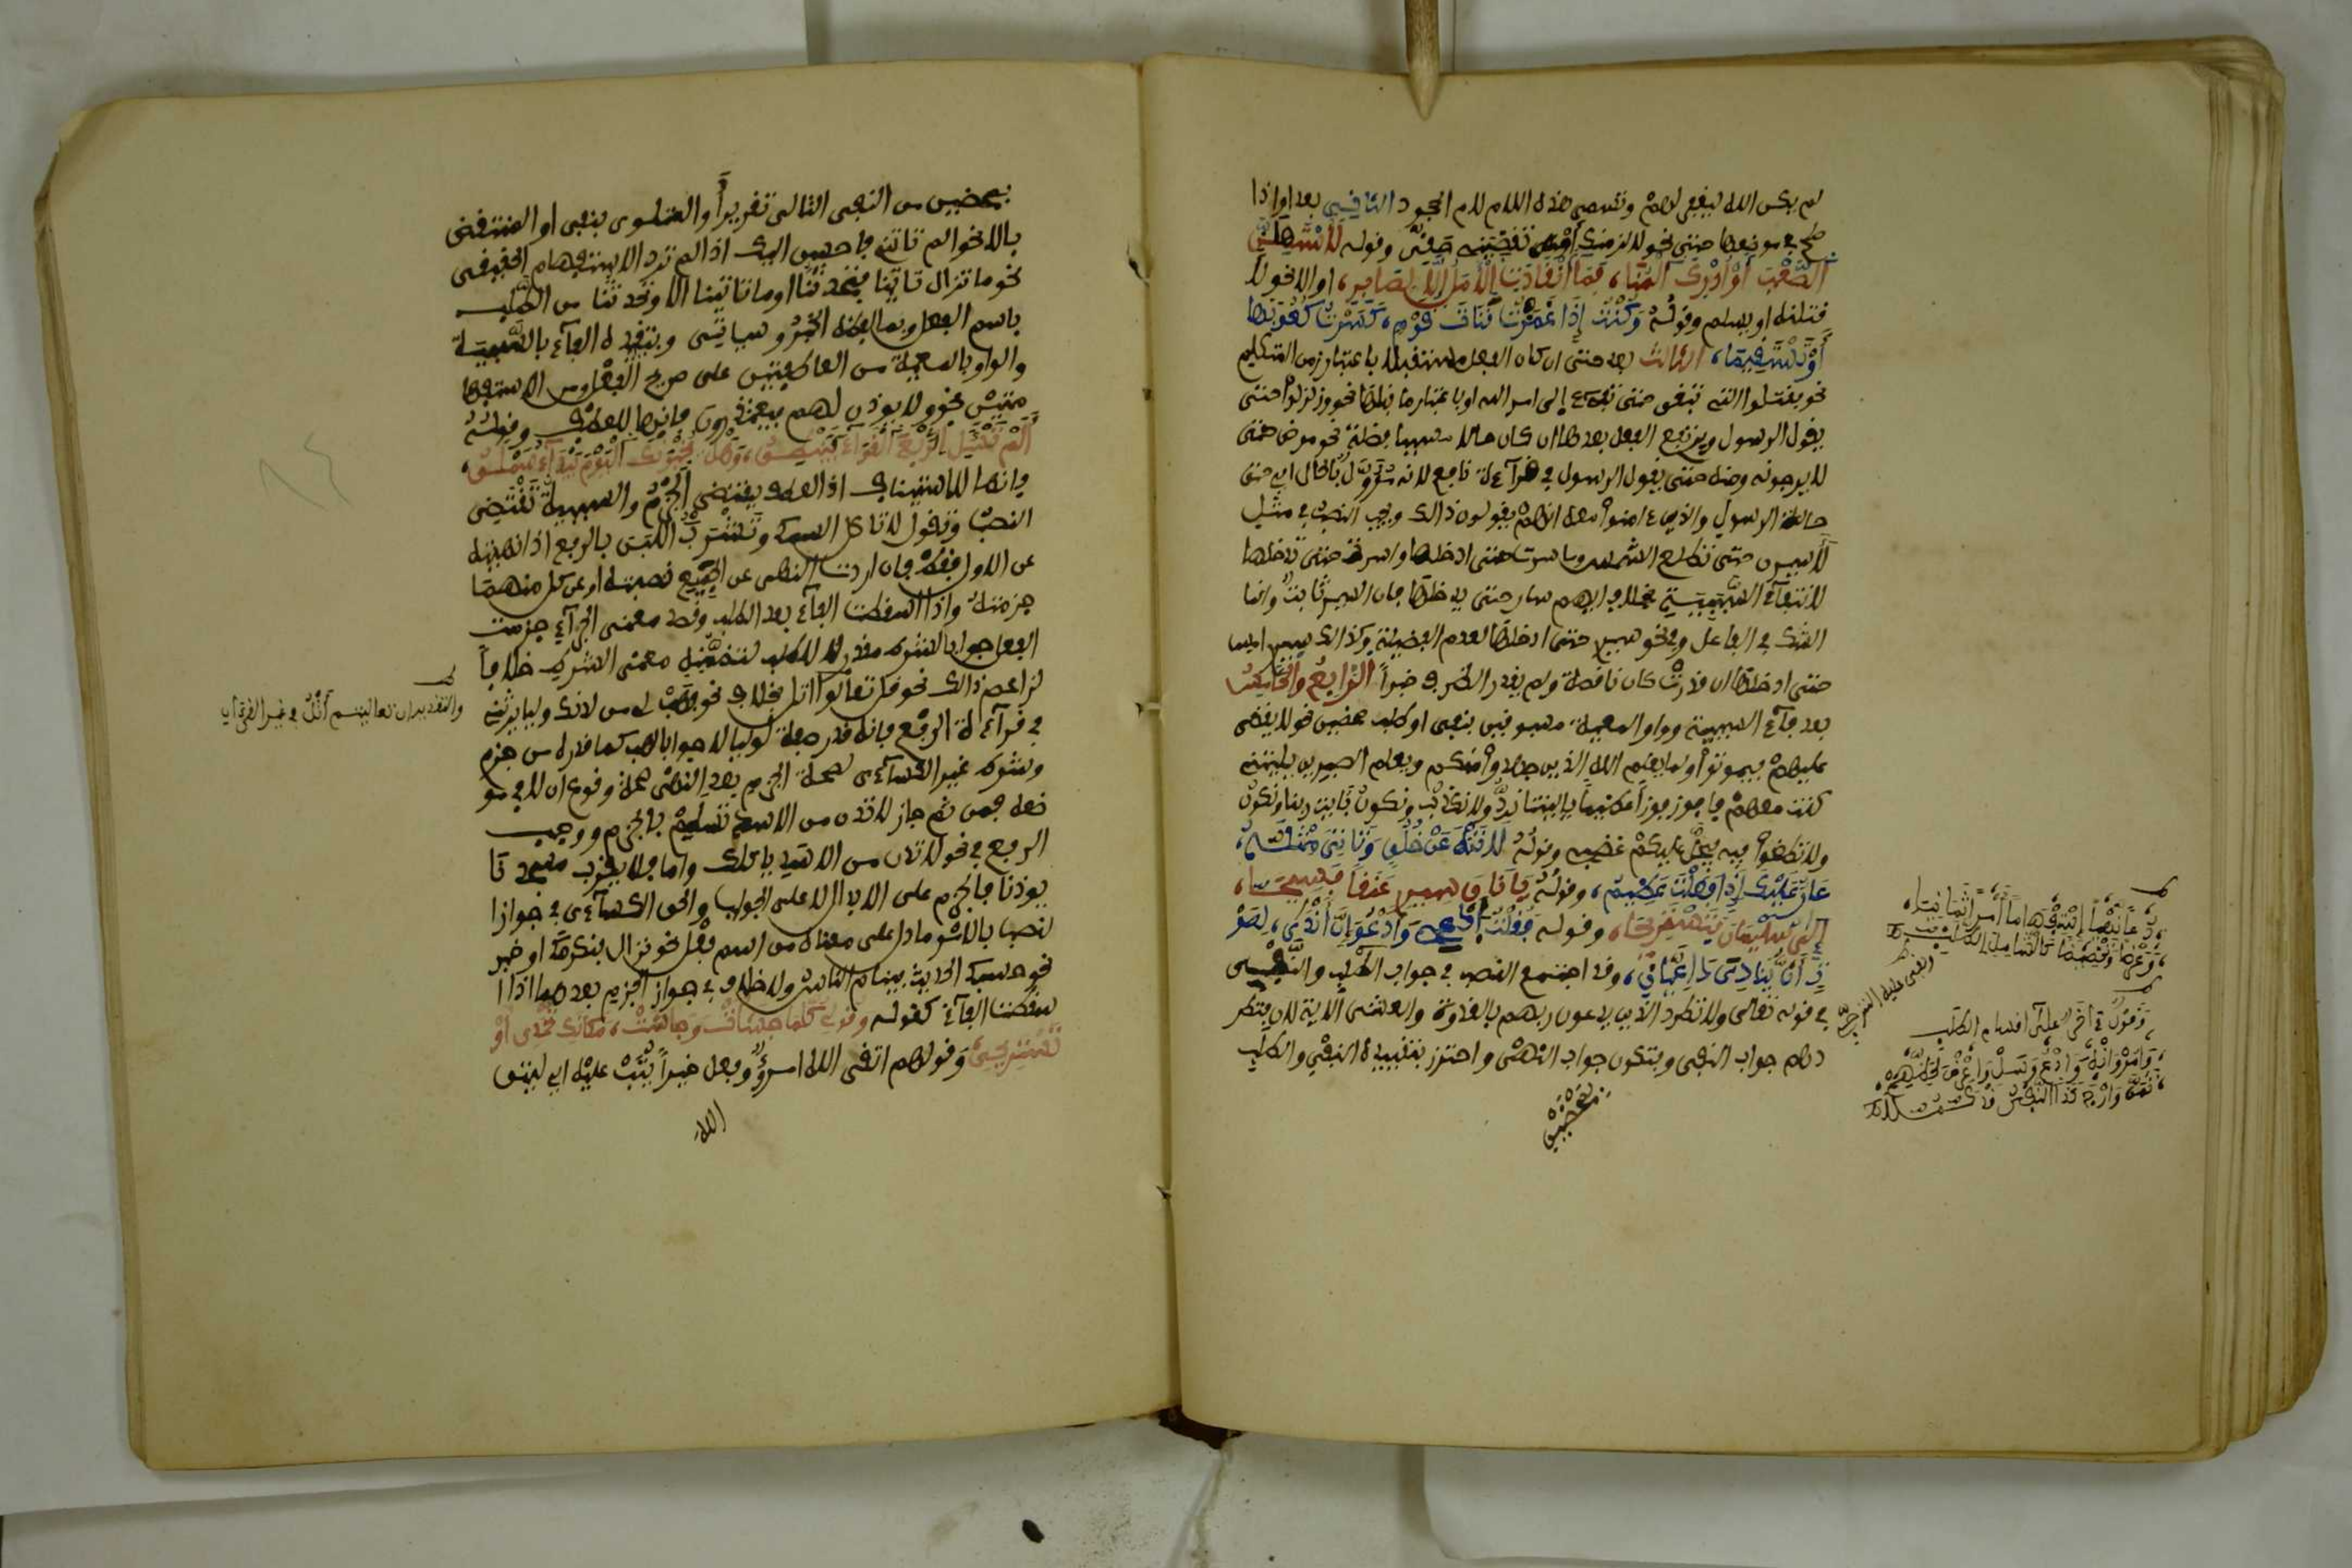 لم يكن الله ليغفر لهم وتسمى هذه اللام لام الجحود الثاني بعد او اذا
صلح في موضعها حتى نحو لالزمنك او تقضيني حقي وقوله لأستسهلن
الصعب أو أدرك المنى، فما انقادت الآمال إلا لصابر، او الا نحو لا
قتلنه او يسلم وقوله وكنت إذا غمزت قناة قوم، كسرت كعوبها
أو تستقيما، الثالث بعد حتى ان كان الفعل مستقبلا باعتبار زمن التكلم
نحو فقاتلوا التي تبغي حتى تفيء إلى امر الله او باعتبار ما قبلها نحو وزلزلوا حتى
يقول الرسول ويرتفع الفعل بعدها ان كان حالا مسببا فضلة نحو مرض حتى
لا يرجونه ومنه حتى يقول الرسول في قراءة نافع لانه مؤول بالحال اي حتى
حالة الرسول والذين ءامنوا معه انهم يقولون ذالك ويجب النصب في مثل
لأسيرن حتى تطلع الشمس وما سرت حتى ادخلها واسرت حتى تدخلها
لانتفاء السببية بخلاف ايهم سار حتى يدخلها فان السير ثابت وانما
الشك في الفاعل وفي نحو سيري حتى ادخلها لعدم الفضلية وكذالك سيري امس
حتى ادخلها ان قدرت كان ناقصة ولم يقدر الظرف خبرا الرابع والخامس
بعد فاء السببية وواو المعية مسبوقين بنفي او طلب محضين نحو لا يقضى
عليهم فيموتوا ولما يعلم الله الذين جاهدوا منكم ويعلم الصبرين يليتني
كنت معهم فافوز فوزا عظيما يليتنا نرد ولا نكذب ونكون بايت ربنا ونكون
ولا تطغوا فيه فيحل عليكم غضبي وقوله لا تنه عن خلق وتأتي مثله،
عار عليك إذا فعلت عظيم، وقوله يا ناق سيري عنقا فسيحا،
إلى سليمان فنستريحا، وقوله فقلت ادعي وأدعو إن أندى، لصو
ت أن ينادي داعيان، وقد اجتمع النصب في جواب الطلب والنفي
في قوله تعالى ولا تطرد الذين يدعون ربهم بالغدوة والعشي الاية لان فتطر
دهم جواب النفي وفتكون جواب النهي واحترز بتقييده النفي والطلب
بمحضين
وقول في أخرى على اقسام الطلب
بمحضين من النفي التالي تقريرا والمتلو بنفي او المنتقض
بالا نحو الم تاتني فاحسن اليك اذا لم ترد الاستفهام الحقيقي
نحو ما تزال تاتينا فتحدثنا او ما تاتينا الا وتحدثنا من الطلب
باسم الفعل وبما لفظه الخبر وسياتي وبتقييده الفاء بالسببية
والواو بالمعية من العاطفتين على صريح الفعل ومن الاستينافـ
ـيتين نحو ولا يوذن لهم فيعتذرون فانها للعطف وقوله
ألم تسأل الربع القواء فينطق، وهل تخبرنك اليوم بيداء سملق،
فانها للاستيناف اذ العطف يقتضي الجزم والسببية تقتضي
النصب وتقول لا تاكل السمك وتشرب اللبن بالرفع اذا نهيته
عن الاول فقط فان اردت النهي عن الجمع نصبته او عن كل منهما
جزمته واذا اسقطت الفاء بعد الطلب وقصد معنى الجزاء جزمت
الفعل جوابا لشرط مقدر لا للطلب لتضمنه معنى الشرط خلافا
لزاعم ذالك نحو قل تعالوا اتل بخلاف نحو فهب لي من لدنك وليا يرثني
في قراءة الرفع فانه قدر صفة لوليا لا جوابا لهب كما قدره من جزم
وشرط غير الكسائي لصحة الجزم بعد النهي صحة وقوع ان لا في مو
ضعه فمن ثم جاز لا تدن من الاسد تسلم بالجزم ووجب
الرفع في نحو لا تدن من الاسد ياكلك واما فلا يقرب مسجدنا
يوذنا فالجزم على الابدال لا على الجواب والحق الكسائي في جواز
النصب بالامر ما دل على معناه من اسم فعل نحو نزال فنكرمك او خبر
نحو حسبك الحديث فينام الناس ولا خلاف في جواز الجزم بعدهما اذا ا
سقطت الفاء كقوله وقولي كلما جشأت وجاشت، مكانك تحمدي أو
تستريحي وقولهم اتقى الله امرؤ وفعل خيرا يثب عليه اي ليتق
الله